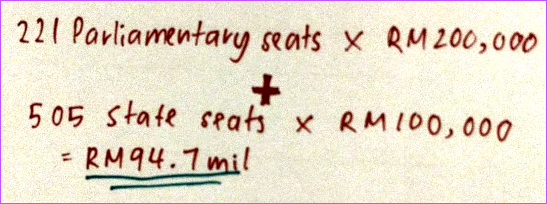 221 Parliamentary seats x RM200,000
+
505 State seats x RM100,000
= RM94.7mil